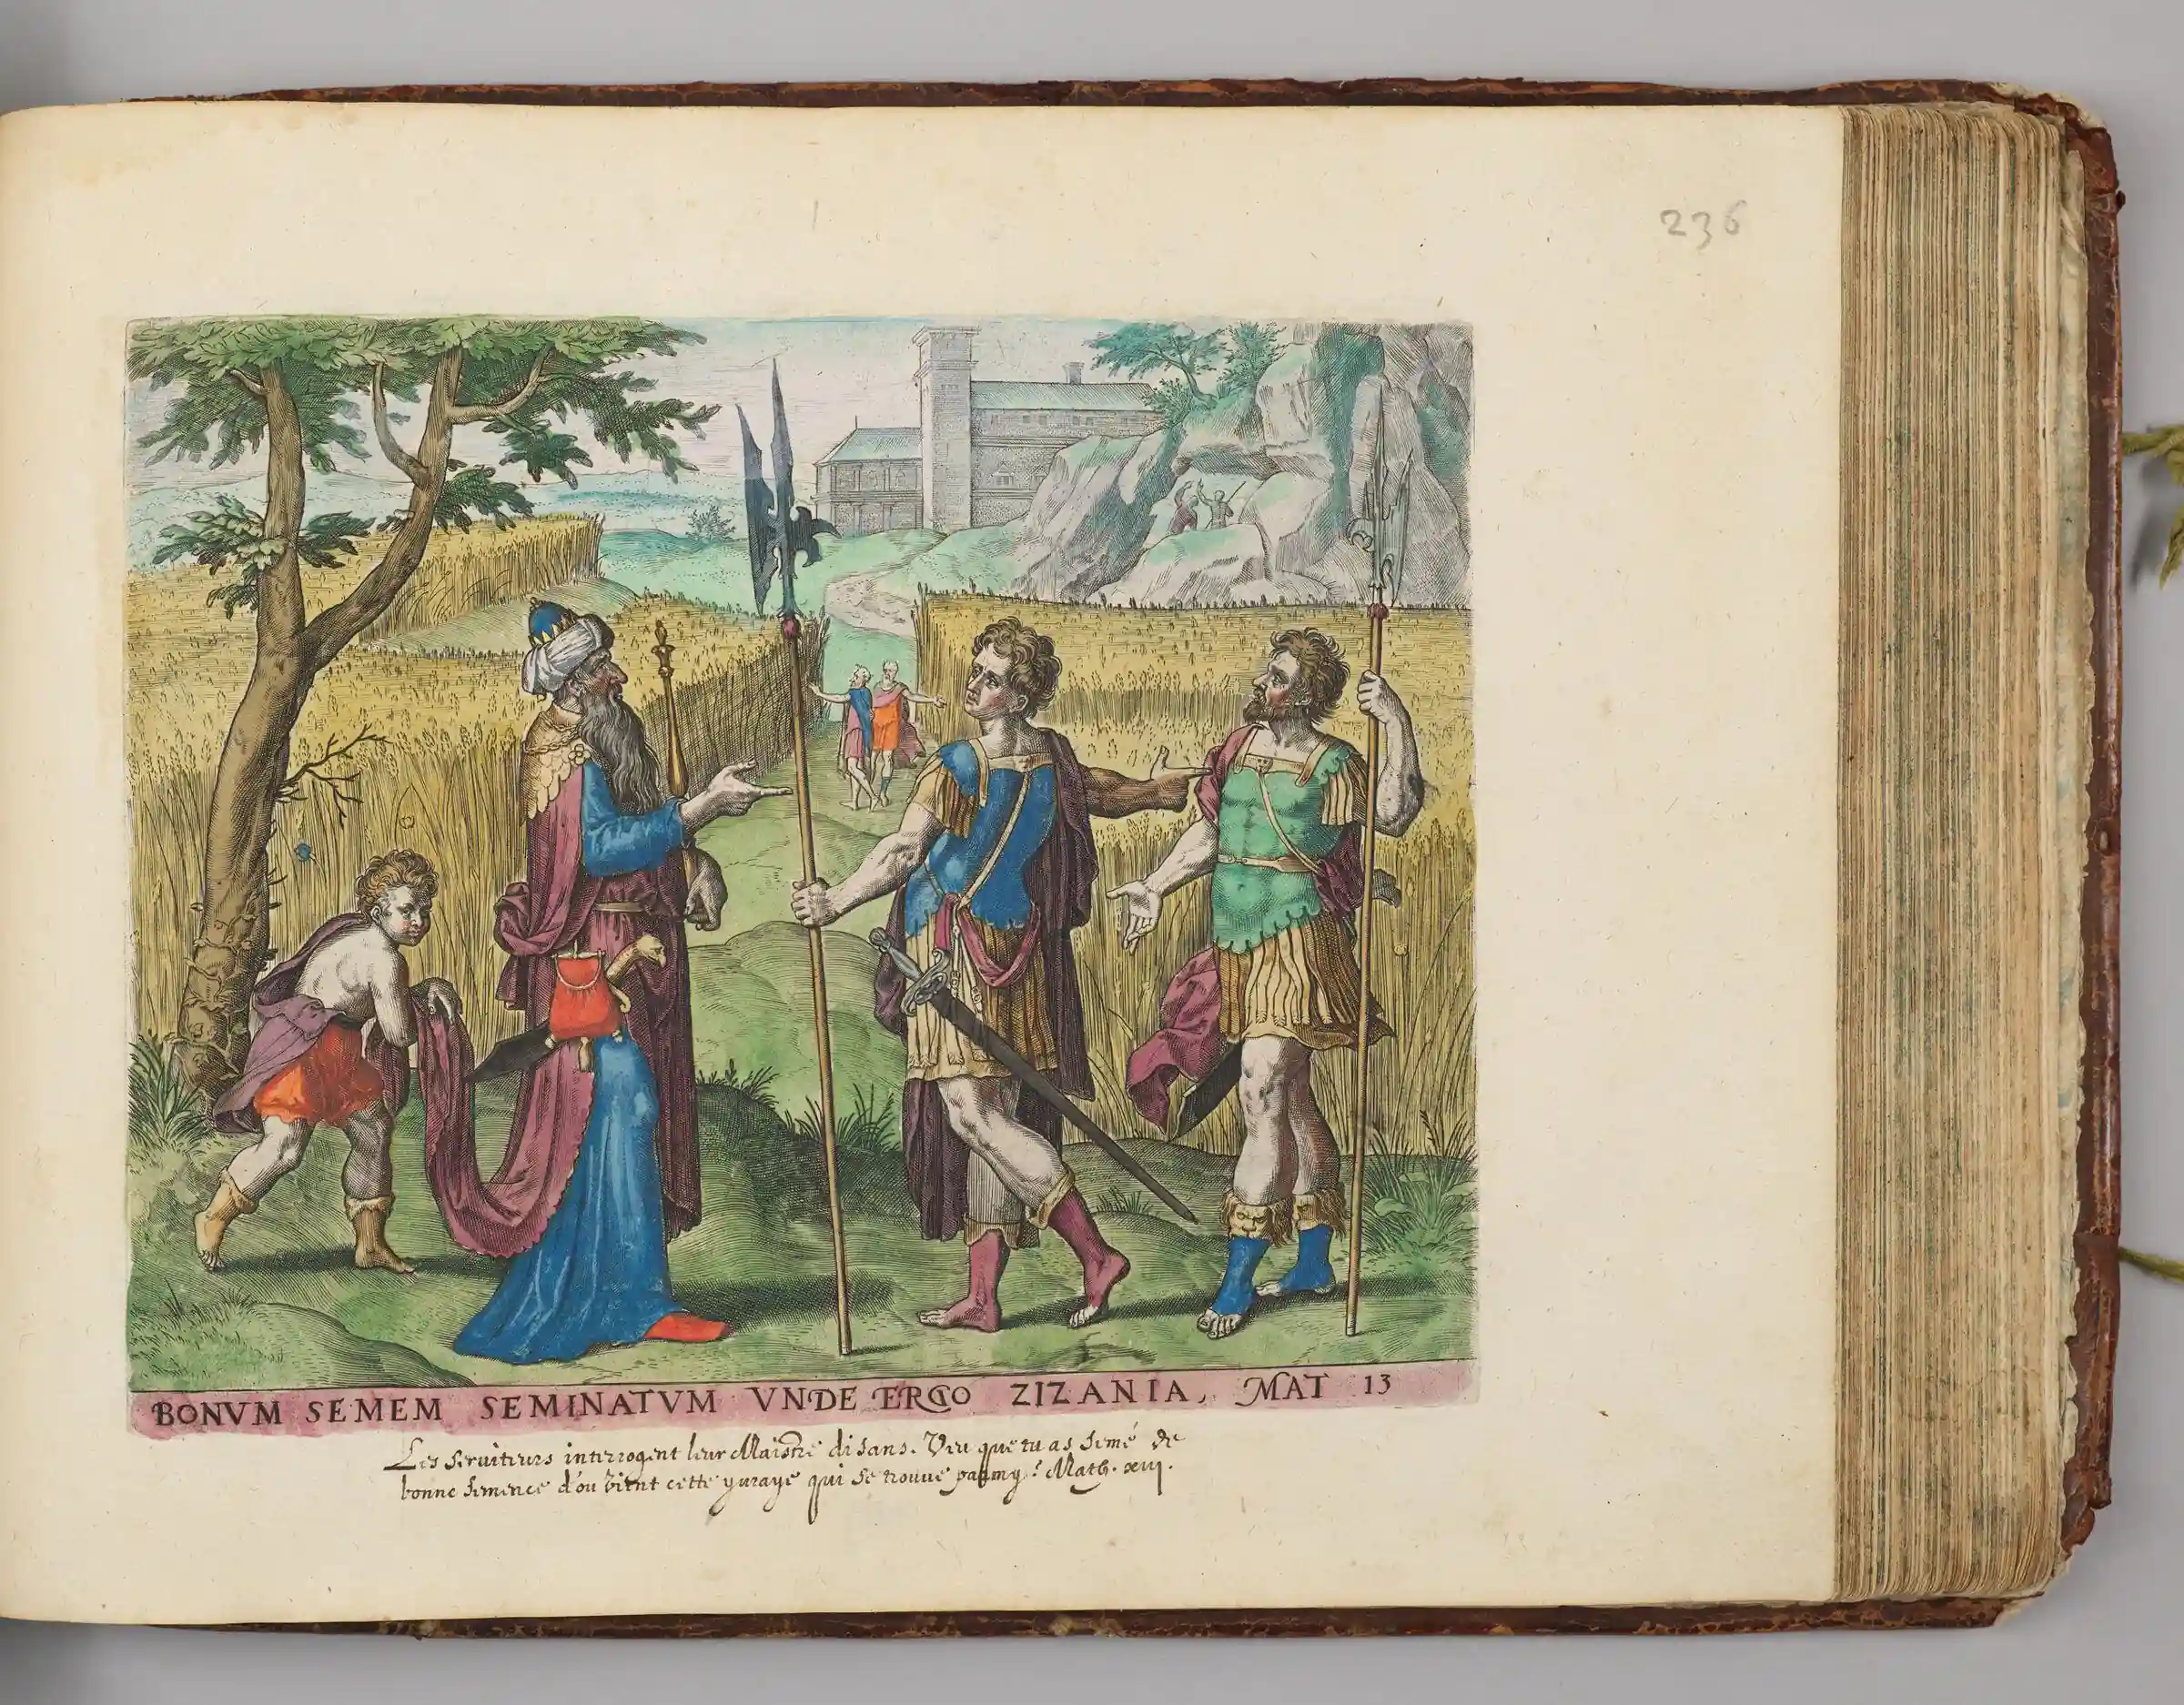 236
BONVM SEMEM SEMINATVM VNDE ERGO ZIZANIA, MAT 13
Les seruiteurs interrogent leur Maistre disans. Veu que tu as semé de
bonne semence d'ou vient cette yuraye qui se trouue parmy? Math. xiij.